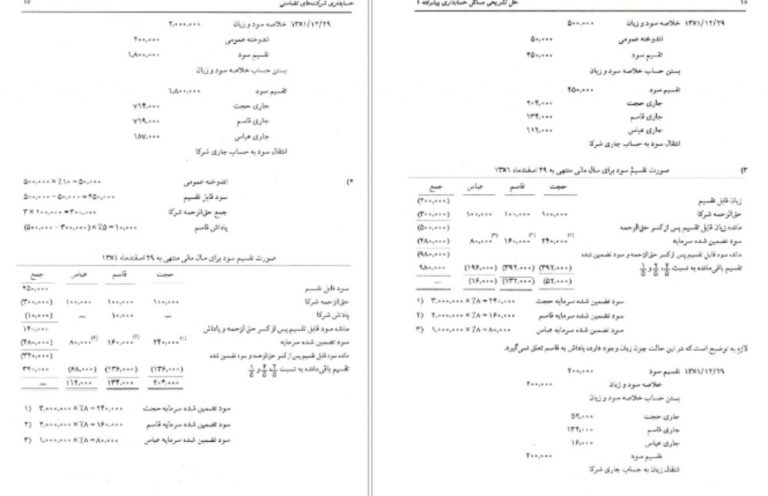 حسابداری شرکت‌های تضامنی ۴۷
۱۳X۱/۱۲/۲۹ خلاصه سود و زیان ۲,۰۰۰,۰۰۰
اندوخته عمومی ۲۰۰,۰۰۰
تقسیم سود ۱,۸۰۰,۰۰۰
بستن حساب خلاصه سود و زیان
تقسیم سود ۱,۸۰۰,۰۰۰
جاری حجت ۷۱۴,۰۰۰
جاری قاسم
جاری عباس
انتقال سود به حساب جاری شرکا
۲) اندوخته عمومی ۵۰۰,۰۰۰ × ٪۱۰ = ۵۰,۰۰۰
سود قابل تقسیم ۵۰۰,۰۰۰ − ۵۰,۰۰۰ = ۴۵۰,۰۰۰
جمع حق‌الزحمه شرکا ۳ × ۱۰۰,۰۰۰ = ۳۰۰,۰۰۰
پاداش قاسم (۵۰۰,۰۰۰ − ۳۰۰,۰۰۰) × ٪۵ = ۱۰,۰۰۰
صورت تقسیم سود برای سال مالی منتهی به ۲۹ اسفندماه ۱۳X۱
حجت قاسم عباس جمع
سود قابل تقسیم ۴۵۰,۰۰۰
حق‌الزحمه شرکا ۱۰۰,۰۰۰ ۱۰۰,۰۰۰ ۱۰۰,۰۰۰ (۳۰۰,۰۰۰)
پاداش شرکا — ۱۰,۰۰۰ — (۱۰,۰۰۰)
مانده سود قابل تقسیم پس از کسر حق‌الزحمه و پاداش ۱۴۰,۰۰۰
سود تضمین شده سرمایه ۲۴۰,۰۰۰(۱) ۱۶۰,۰۰۰(۲) ۸۰,۰۰۰(۳) (۴۸۰,۰۰۰)
مانده سود قابل تقسیم پس از کسر حق‌الزحمه و سود تضمین شده (۳۴۰,۰۰۰)
تقسیم باقی‌مانده به نسبت ۲/۵ و ۲/۵ و ۱/۵ (۱۳۶,۰۰۰) (۱۳۶,۰۰۰) (۶۸,۰۰۰) ۳۴۰,۰۰۰
۲۰۴,۰۰۰ ۱۳۴,۰۰۰ ۱۱۲,۰۰۰ —
۱) سود تضمین شده سرمایه حجت ۳,۰۰۰,۰۰۰ × ٪۸ = ۲۴۰,۰۰۰
۲) سود تضمین شده سرمایه قاسم ۲,۰۰۰,۰۰۰ × ٪۸ = ۱۶۰,۰۰۰
۳) سود تضمین شده سرمایه عباس ۱,۰۰۰,۰۰۰ × ٪۸ = ۸۰,۰۰۰
۴۸ حل تشریحی مسائل حسابداری پیشرفته ۱
۱۳X۱/۱۲/۲۹ خلاصه سود و زیان ۵۰۰,۰۰۰
اندوخته عمومی ۵۰,۰۰۰
تقسیم سود ۴۵۰,۰۰۰
بستن حساب خلاصه سود و زیان
تقسیم سود ۴۵۰,۰۰۰
جاری حجت ۲۰۴,۰۰۰
جاری قاسم ۱۳۴,۰۰۰
جاری عباس ۱۱۲,۰۰۰
انتقال سود به حساب جاری شرکا
۳) صورت تقسیم سود برای سال مالی منتهی به ۲۹ اسفندماه ۱۳X۱
حجت قاسم عباس جمع
زیان قابل تقسیم (۲۰۰,۰۰۰)
حق‌الزحمه شرکا ۱۰۰,۰۰۰ ۱۰۰,۰۰۰ ۱۰۰,۰۰۰ (۳۰۰,۰۰۰)
مانده زیان قابل تقسیم پس از کسر حق‌الزحمه (۵۰۰,۰۰۰)
سود تضمین شده سرمایه ۲۴۰,۰۰۰(۱) ۱۶۰,۰۰۰(۲) ۸۰,۰۰۰(۳) (۴۸۰,۰۰۰)
مانده سود قابل تقسیم پس از کسر حق‌الزحمه و سود تضمین شده (۹۸۰,۰۰۰)
تقسیم باقی‌مانده به نسبت ۲/۵ و ۲/۵ و ۱/۵ (۳۹۲,۰۰۰) (۳۹۲,۰۰۰) (۱۹۶,۰۰۰) ۹۸۰,۰۰۰
(۵۲,۰۰۰) (۱۳۲,۰۰۰) (۱۶,۰۰۰) —
۱) سود تضمین شده سرمایه حجت ۳,۰۰۰,۰۰۰ × ٪۸ = ۲۴۰,۰۰۰
۲) سود تضمین شده سرمایه قاسم ۲,۰۰۰,۰۰۰ × ٪۸ = ۱۶۰,۰۰۰
۳) سود تضمین شده سرمایه عباس ۱,۰۰۰,۰۰۰ × ٪۸ = ۸۰,۰۰۰
لازم به توضیح است که در این حالت چون زیان وجود دارد، پاداش به قاسم تعلق نمی‌گیرد.
۱۳X۱/۱۲/۲۹ تقسیم سود ۲۰۰,۰۰۰
خلاصه سود و زیان ۲۰۰,۰۰۰
بستن حساب خلاصه سود و زیان
جاری حجت ۵۲,۰۰۰
جاری قاسم ۱۳۲,۰۰۰
جاری عباس ۱۶,۰۰۰
تقسیم سود ۲۰۰,۰۰۰
انتقال زیان به حساب جاری شرکا